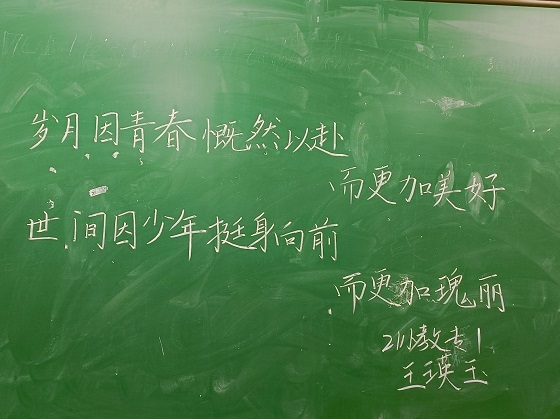 岁月因青春慨然以赴
而更加美好
世间因少年挺身向前
而更加瑰丽
21小教专1
王瑛玉